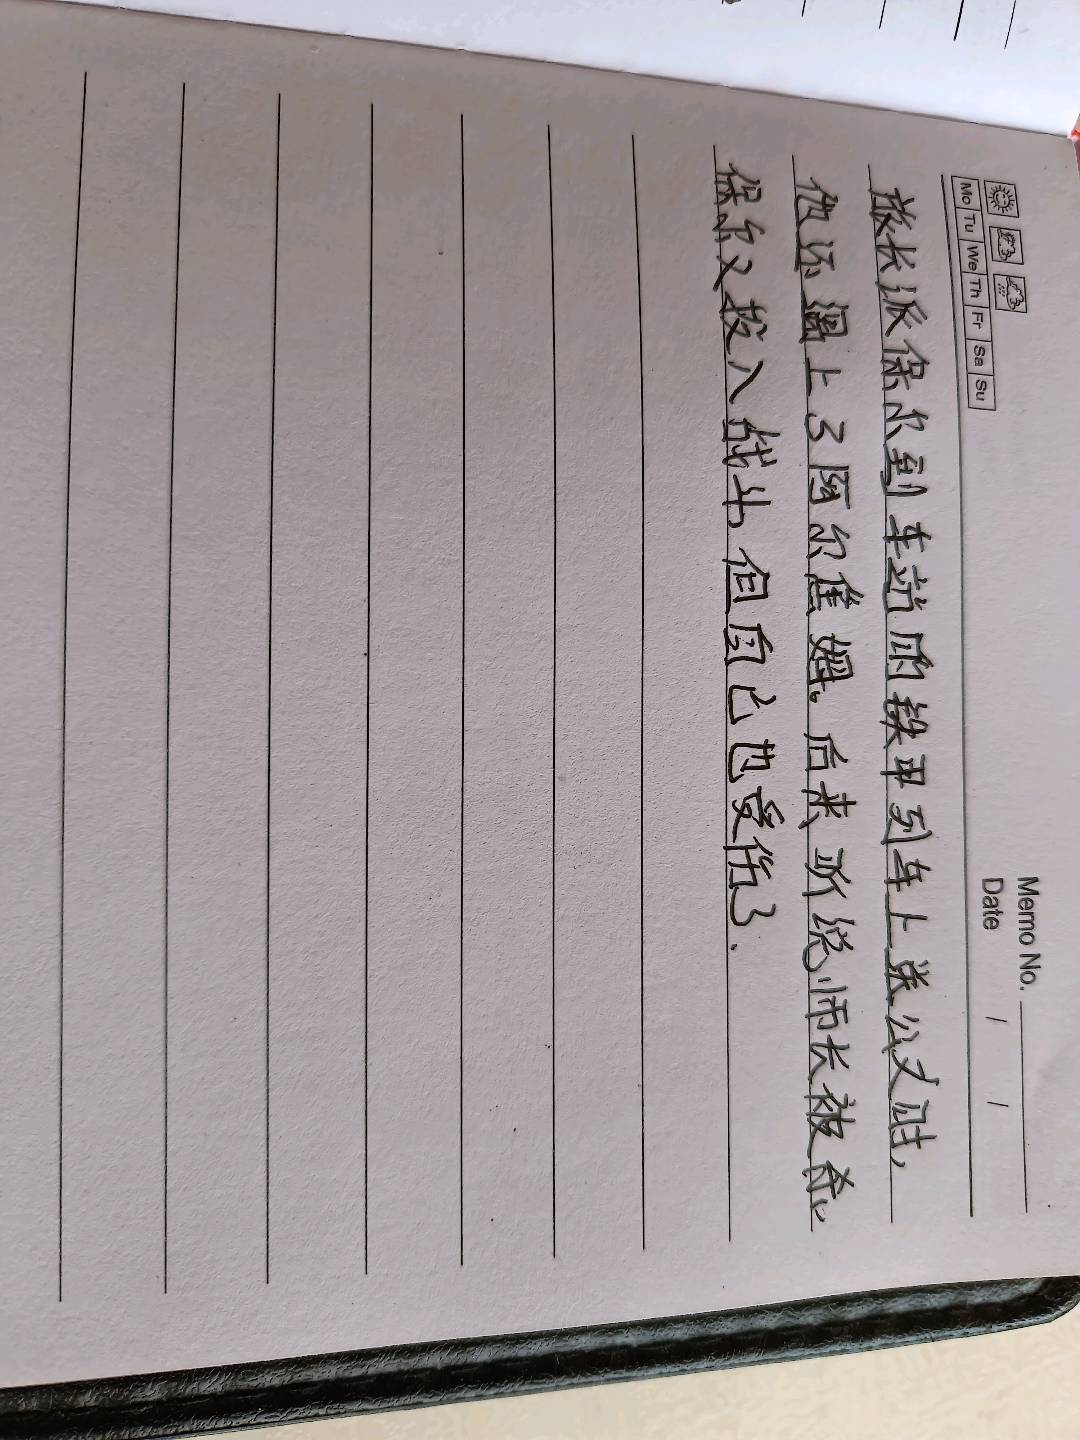 Memo No.
Mo Tu We Th Fr Sa Su
Date / /
旅长派保尔到车站的铁甲列车上送公文时,
他还遇上了阿尔焦姆。后来,听说师长被杀,
保尔又投入战斗,但自己也受伤了.